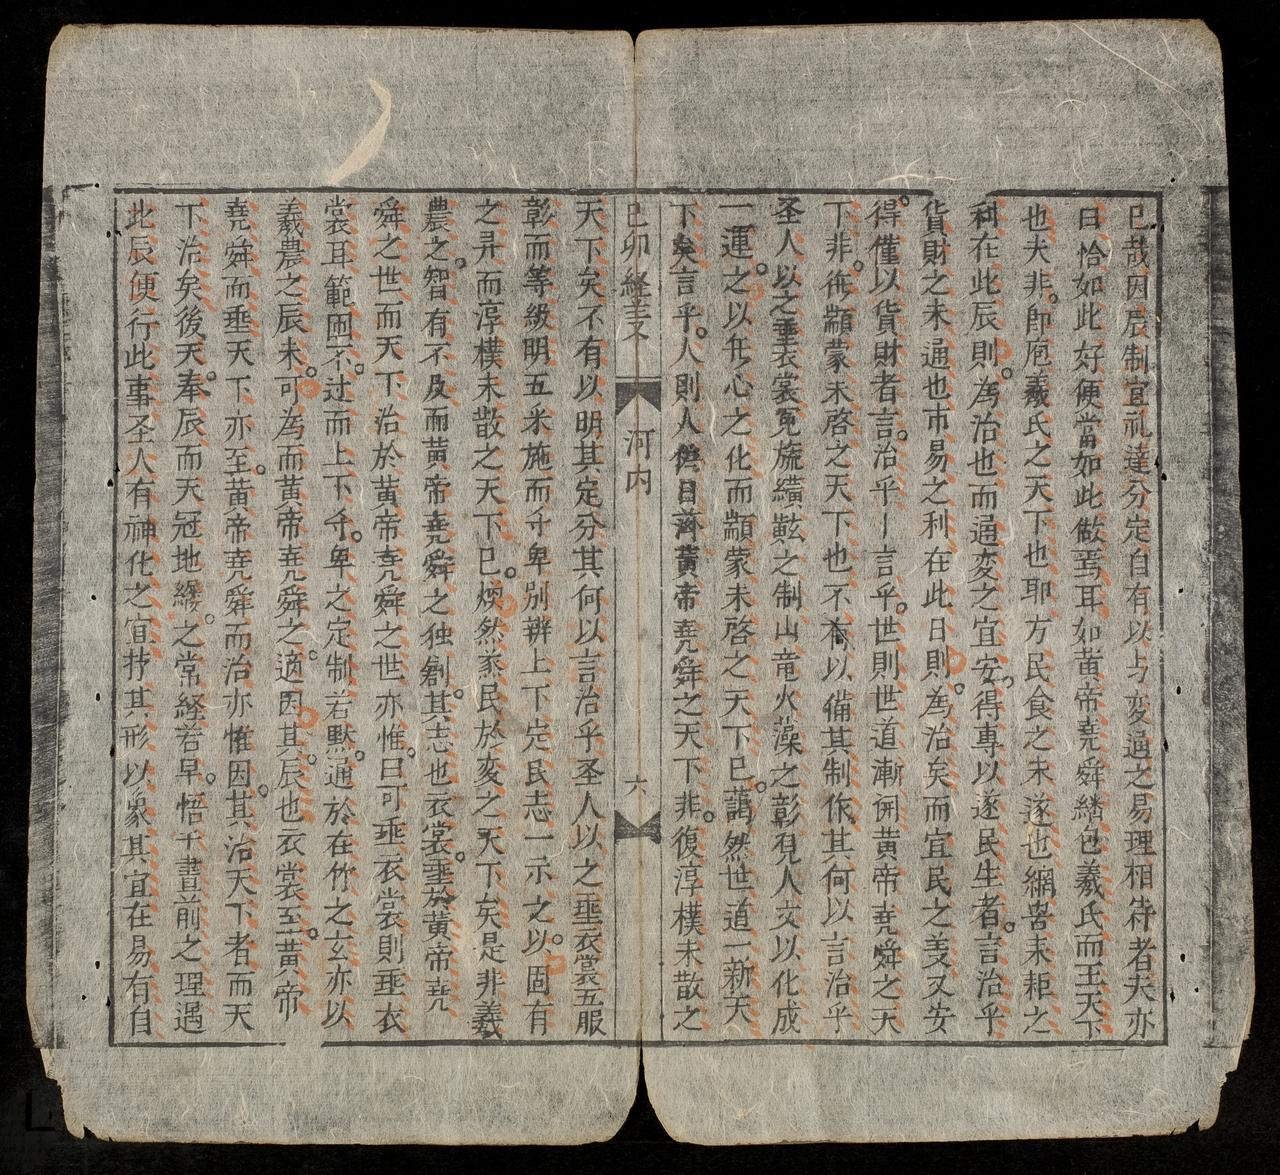 已哉因辰制宜礼達分定自有以与変通之易理相符者夫亦
曰恰如此好便當如此做焉耳如黃帝堯舜繼包羲氏而王天下
也夫非即庖羲氏之天下也耶方民食之未遂也網罟耒耜之
利在此辰則為治也而通変之宜安得專以遂民生者言治乎
貨財之未通也市易之利在此日則為治矣而宜民之義又安
得僅以貨財者言治乎言乎世則世道漸開黃帝堯舜之天
下非復顓蒙未啓之天下也不有以備其制作其何以言治乎
圣人以之垂衣裳冕旒纊黈之制山竜火藻之彰現人文以化成
一運之以无心之化而顓蒙未啓之天下已藹然世道一新天
下矣言乎人則人俗日漓黃帝堯舜之天下非復淳樸未散之
己卯経义 河内 六
天下矣不有以明其定分其何以言治乎圣人以之垂衣裳五服
彰而等級明五采施而千卑別辨上下定民志一示之以固有
之弁而淳樸未散之天下已煥然蒸民於変之天下矣是非羲
農之智有不及而黃帝堯舜之独創其志也衣裳垂於黃帝堯
舜之世而天下治於黃帝堯舜之世亦惟曰可垂衣裳則垂衣
裳耳範囿不过而上下千卑之定制若黙通於在竹之玄亦以
羲農之辰未可為而黃帝堯舜之適因其辰也衣裳至黃帝
堯舜而垂天下亦至黃帝堯舜而治亦惟因其治天下者而天
下治矣後天奉辰而天冠地縷之常経若早悟千畫前之理遇
此辰便行此事圣人有神化之宜抒其形以象其宜在易有自